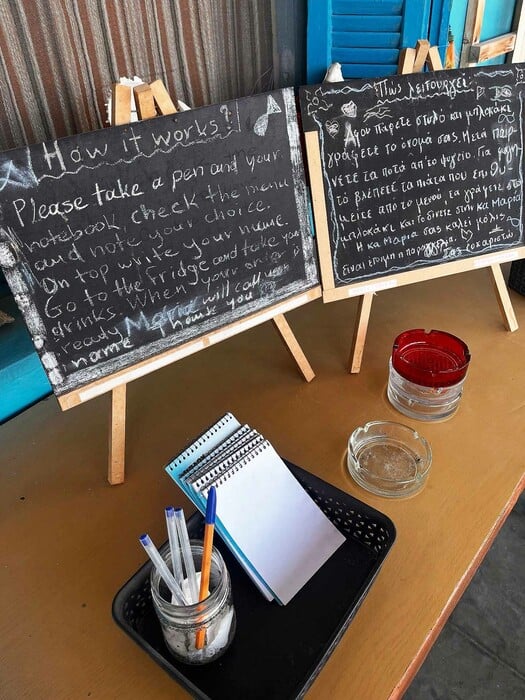 How it works?
Please take a pen and your
notebook check the menu
and note your choice.
On top write your name
Go to the fridge and take you
drinks When your order
ready Maria will call you
name
Πως λειτουργεί
Αφού πάρετε στυλό και μπλοκάκι
γράφετε το όνομά σας. Μετά παίρ-
νετε τα ποτά απ'το ψυγείο. Για
το
βλέπετε τα πιάτα που επιθυ
μείτε από το μενού τα γράφετε στο
μπλοκάκι και το δίνετε στην κα Μαρία
Η κα Μαρία σας καλεί μόλις
είναι έτοιμη η παραγγελία. Σας ευχαριστώ